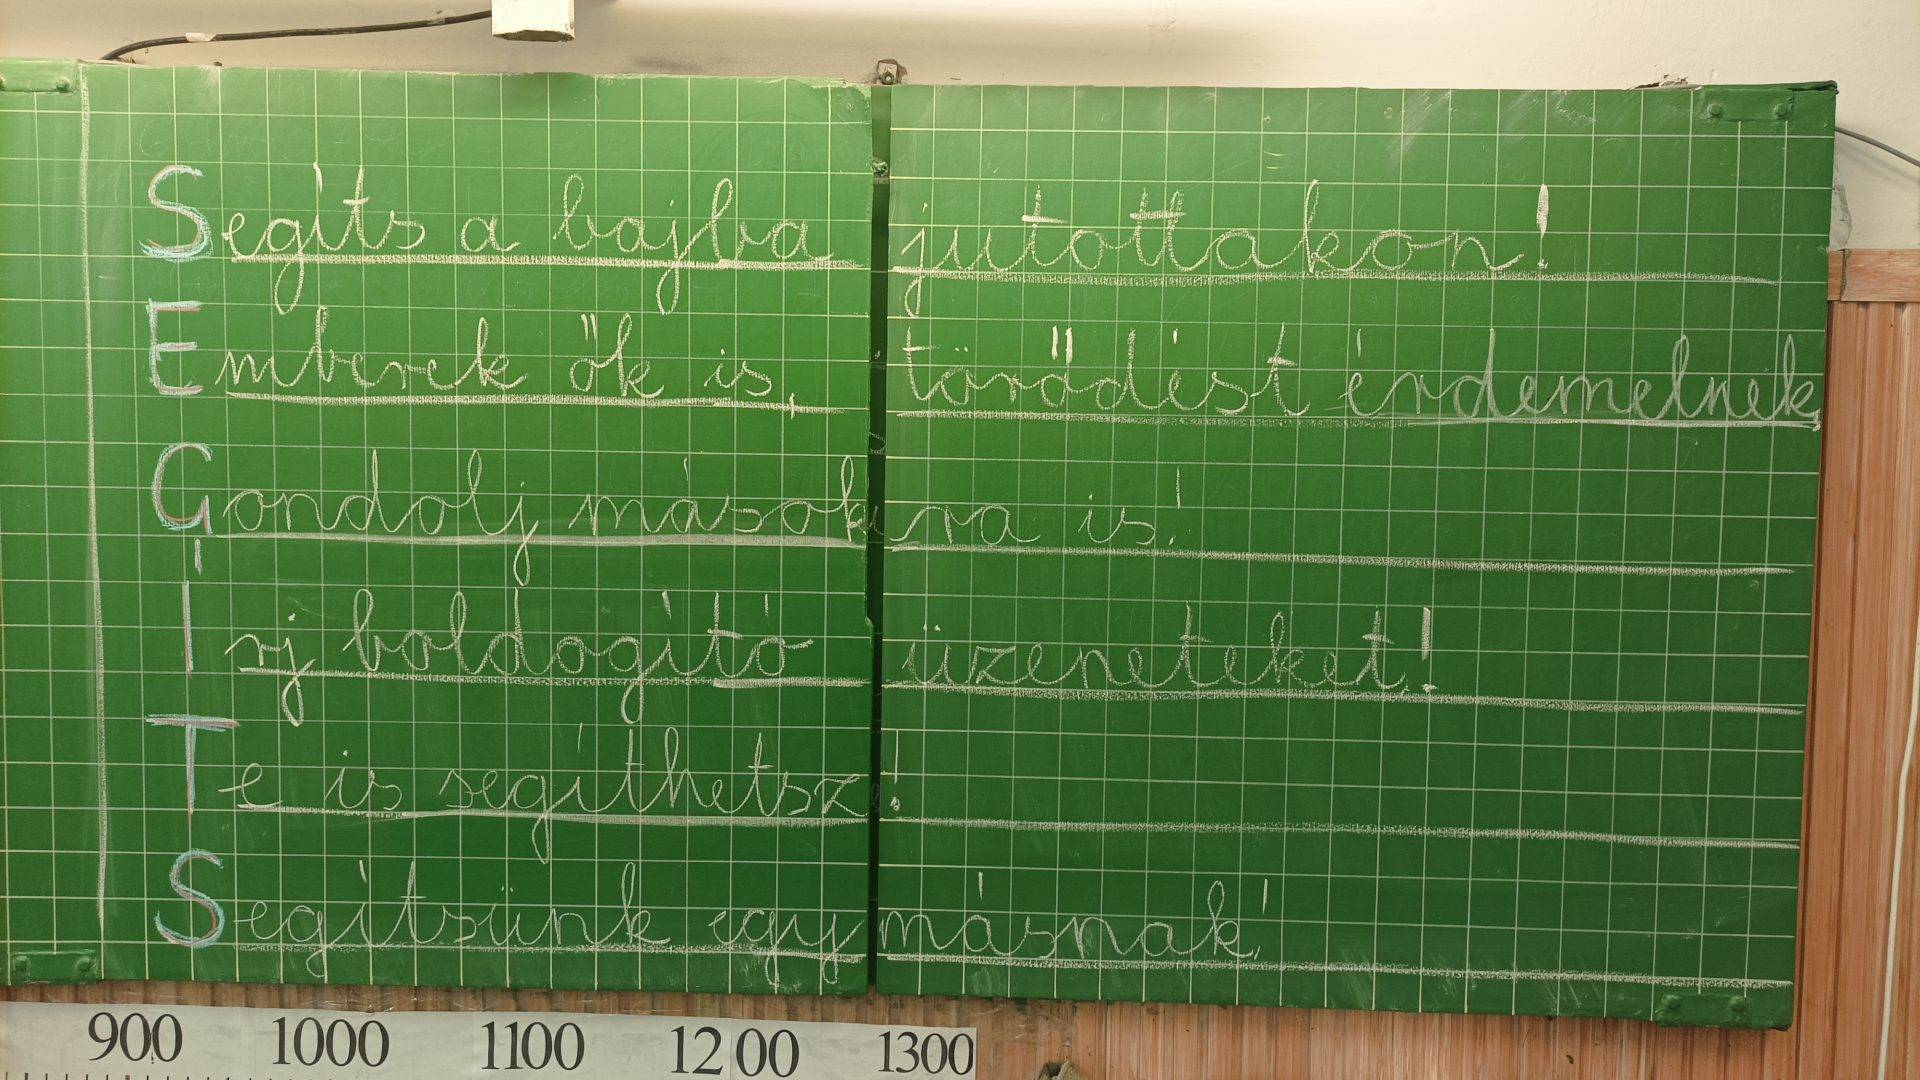 Segíts a bajba jutottakon!
Emberek ők is, törődést érdemelnek.
Gondolj másokra is!
Írj boldogító üzeneteket!
Te is segíthetsz!
Segítsünk egymásnak!
900 1000 1100 1200 1300